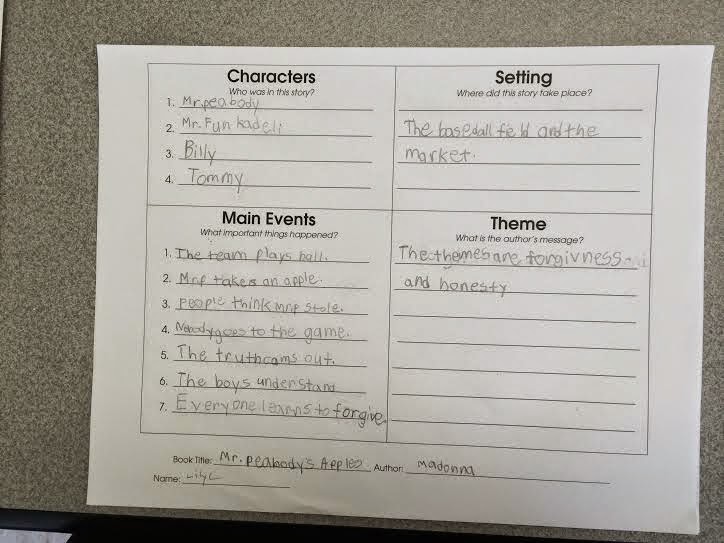 Characters
Who was in this story?
1. Mr.peabody
2. Mr. Funkadeli
3. Billy
4. Tommy
Setting
Where did this story take place?
The baseball field and the
market.
Main Events
What important things happened?
1. The team plays ball.
2. Mr.p takes an apple.
3. people think Mr.p stole.
4. Nobody goes to the game.
5. The truth coms out.
6. The boys understand
7. Everyone learns to forgive.
Theme
What is the author's message?
The themes are forgivness
and honesty
Book Title: Mr. peabody's Apples Author: Madonna
Name: Lily C